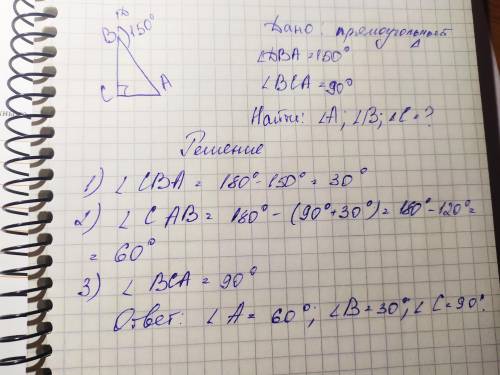 D
B 150°
C A
Дано: прямоугольный △
∠DBA = 150°
∠BCA = 90°
Найти: ∠A; ∠B; ∠C = ?
Решение
1) ∠CBA = 180° - 150° = 30°
2) ∠CAB = 180° - (90° + 30°) = 180° - 120° =
= 60°
3) ∠BCA = 90°
Ответ: ∠A = 60°; ∠B = 30°; ∠C = 90°.